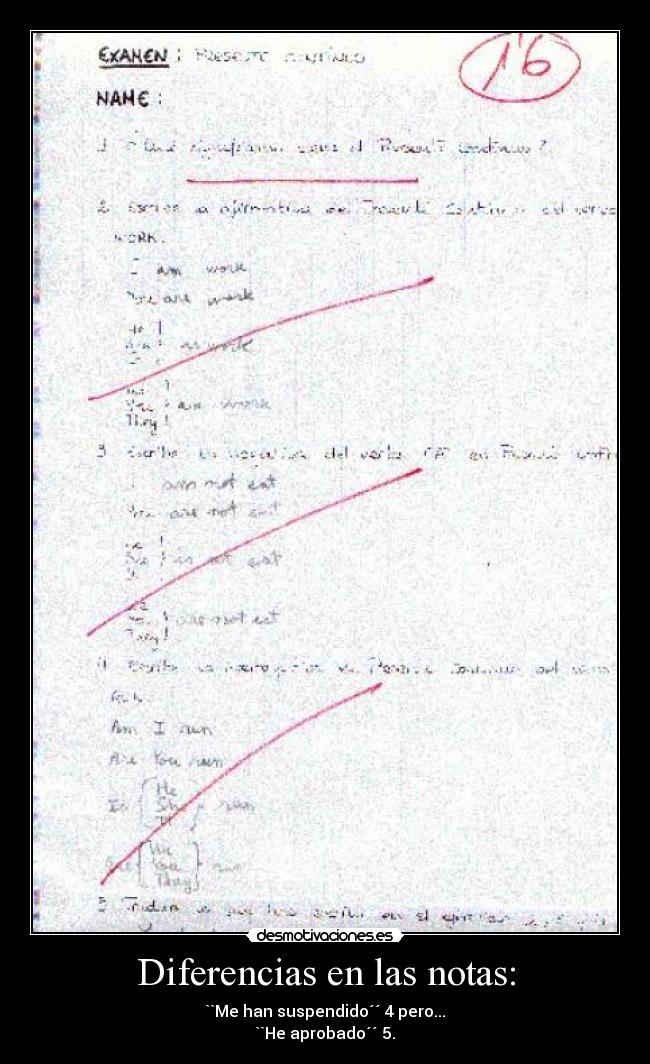 EXAMEN : PRESENTE CONTÍNUO
1'6
NAME :
1 Present Continuous ?
2. Escribe la afirmativa del Presente Continuo del verbo
WORK.
I am work
You are work
He
She is work
It
We
You are work
They
3 Escribe la negativa del verbo EAT en Presente
I am not eat
You are not eat
He
She is not eat
It
We
You are not eat
They
4 Escribe la interrogativa del Presente Continuo del verbo
RUN.
Am I run
Are You run
Is He She It run
Are We You They run
5 en el ejercicio
desmotivaciones.es
Diferencias en las notas:
``Me han suspendido´´ 4 pero...
``He aprobado´´ 5.